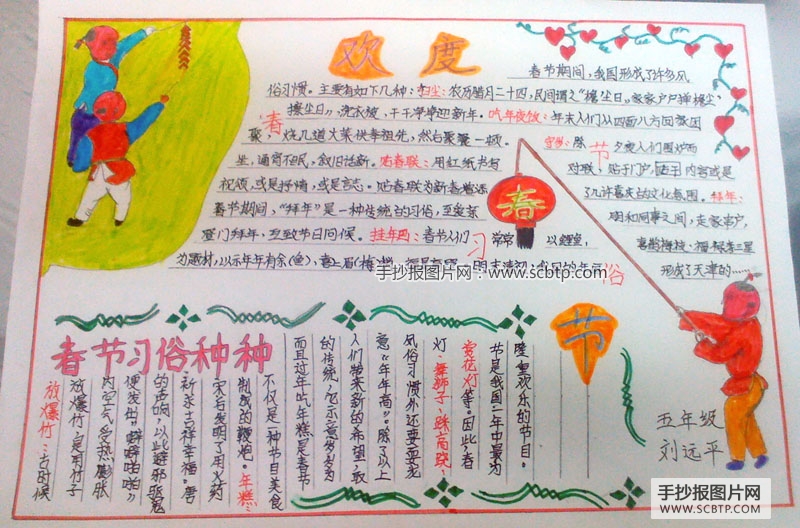 欢度
春节期间，我国形成了许多风
俗习惯。主要有如下几种：扫尘：农历腊月二十四，民间谓之“掸尘日”。家家户户掸檐尘
“掸尘日”，洗衣被，干干净净迎新年。吃年夜饭：年末人们从四面八方回家团
聚，烧几道大菜供奉祖先，然后聚餐一顿。
守岁：除
夕夜人们围炉而
坐，通宵不眠，叙旧话新。贴春联：用红纸书写
对联，贴于门户，内容或是
祝颂，或是抒情，或是言志。贴春联为新春增添
了几许喜庆的文化氛围。拜年：
春节期间，“拜年”是一种传统的习俗，至爱亲
朋和同事之间，走家串户，
登门拜年，互致节日问候。挂年画：春节人们
常常
以鲤鱼，
喜鹊梅枝、福禄寿三星
为题材，以示年年有余(鱼)，喜上眉(梅)梢
形成了天津的……
春
节
习
俗
春
手抄报图片网：www.scbtp.com
春节习俗种种
放爆竹：古时候
放爆竹，是用竹子
内空气受热膨胀
便发出“噼噼啪啪”
的声响，以此避邪驱鬼
祈求吉祥幸福。唐
宋后发明了用火药
制成的鞭炮。年糕：
不仅是一种节日美食
而且过年吃年糕是春节
的传统，它示意岁岁为
人们带来新的希望，取
意“年年高”。除了以上
风俗习惯外还要耍龙
灯、舞狮子、踩高跷、
赏花灯等。因此，春
节是我国一年中最为
隆重欢乐的节目。
节
五年级
刘远平
手抄报图片网
SCBTP.COM